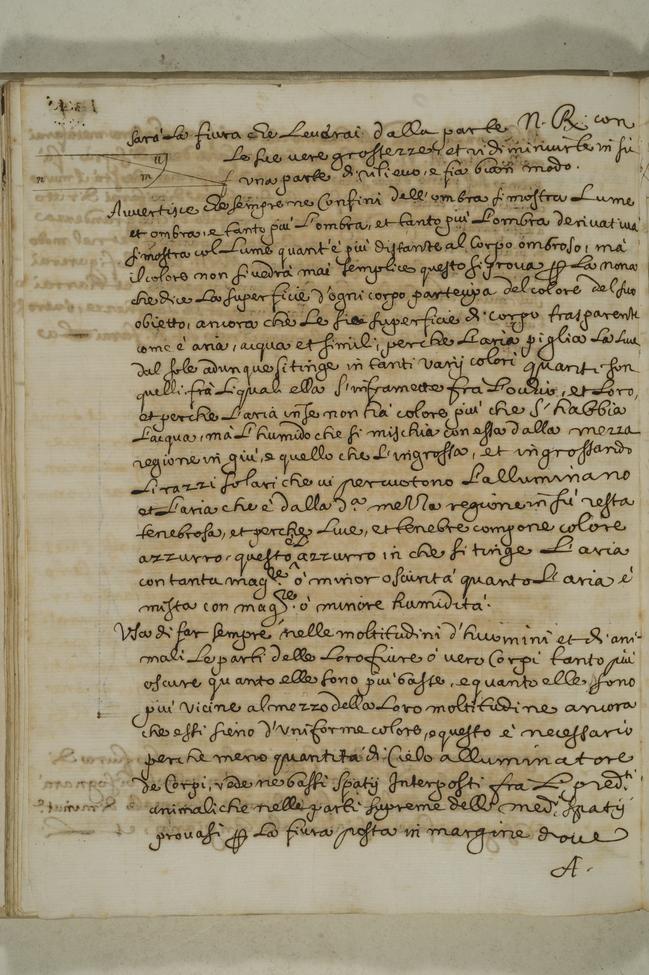 sarà La fiura che Leverai dalla parte N. R. con
Le sue vere grossezze, et vi diminuirle in sù
n n m
una parte di rilievo, e fia buon modo.
Avvertisce che sempre ne Confini dell'ombra si mostra Lume
et ombra, e tanto più L'ombra, et tanto più L'ombra derivativa
si mostra col Lume quant'è più distante al Corpo ombroso, mà
il colore non si vedrà mai semplice questo si prova ꝑ La nona
che dice La superficie d'ogni corpo partecipa del colore del suo
obietto, ancora che Le superficie di corpo trasparente
come è aria, acqua et simili, perche L'aria piglia La Luce
dal sole adunque si tinge in tanti varij colori quanti son
quelli frà Li quali ella s'inframette frà L'ochio, et Loro,
et perche L'aria in se non hà colore più che s'habbia
L'acqua, mà L'humido che si mischia con essa dalla mezza
regione in giù, e quello che L'ingrossa, et ingrossando
Li razzi solari che vi percuotono L'alluminano
et L'aria che è dalla d.ª mezza regione in sù resta
tenebrosa, et perche Luce, et tenebre compone colore
azzurro, questo è azzurro in che si tinge L'aria
con tanta mag.re ò minor oscurità quanto L'aria è
mista con mag.re ò minore humidità.
Usa di far sempre nelle moltitudini d'huomini et di ani-
mali Le parti delle Loro fiure ò vero Corpi tanto più
oscure quanto elle sono più basse, e quanto elle sono
più vicine al mezzo della Loro moltitudine ancora
che essi sieno d'uniforme colore, e questo è necessario
perche meno quantità di Cielo alluminatore
de Corpi, vede ne bassi spatij Interposti frà L. pred.ti
animali che nelle parti supreme delli med.i spatij
provasi ꝑ La fiura posta in margine dove
A.